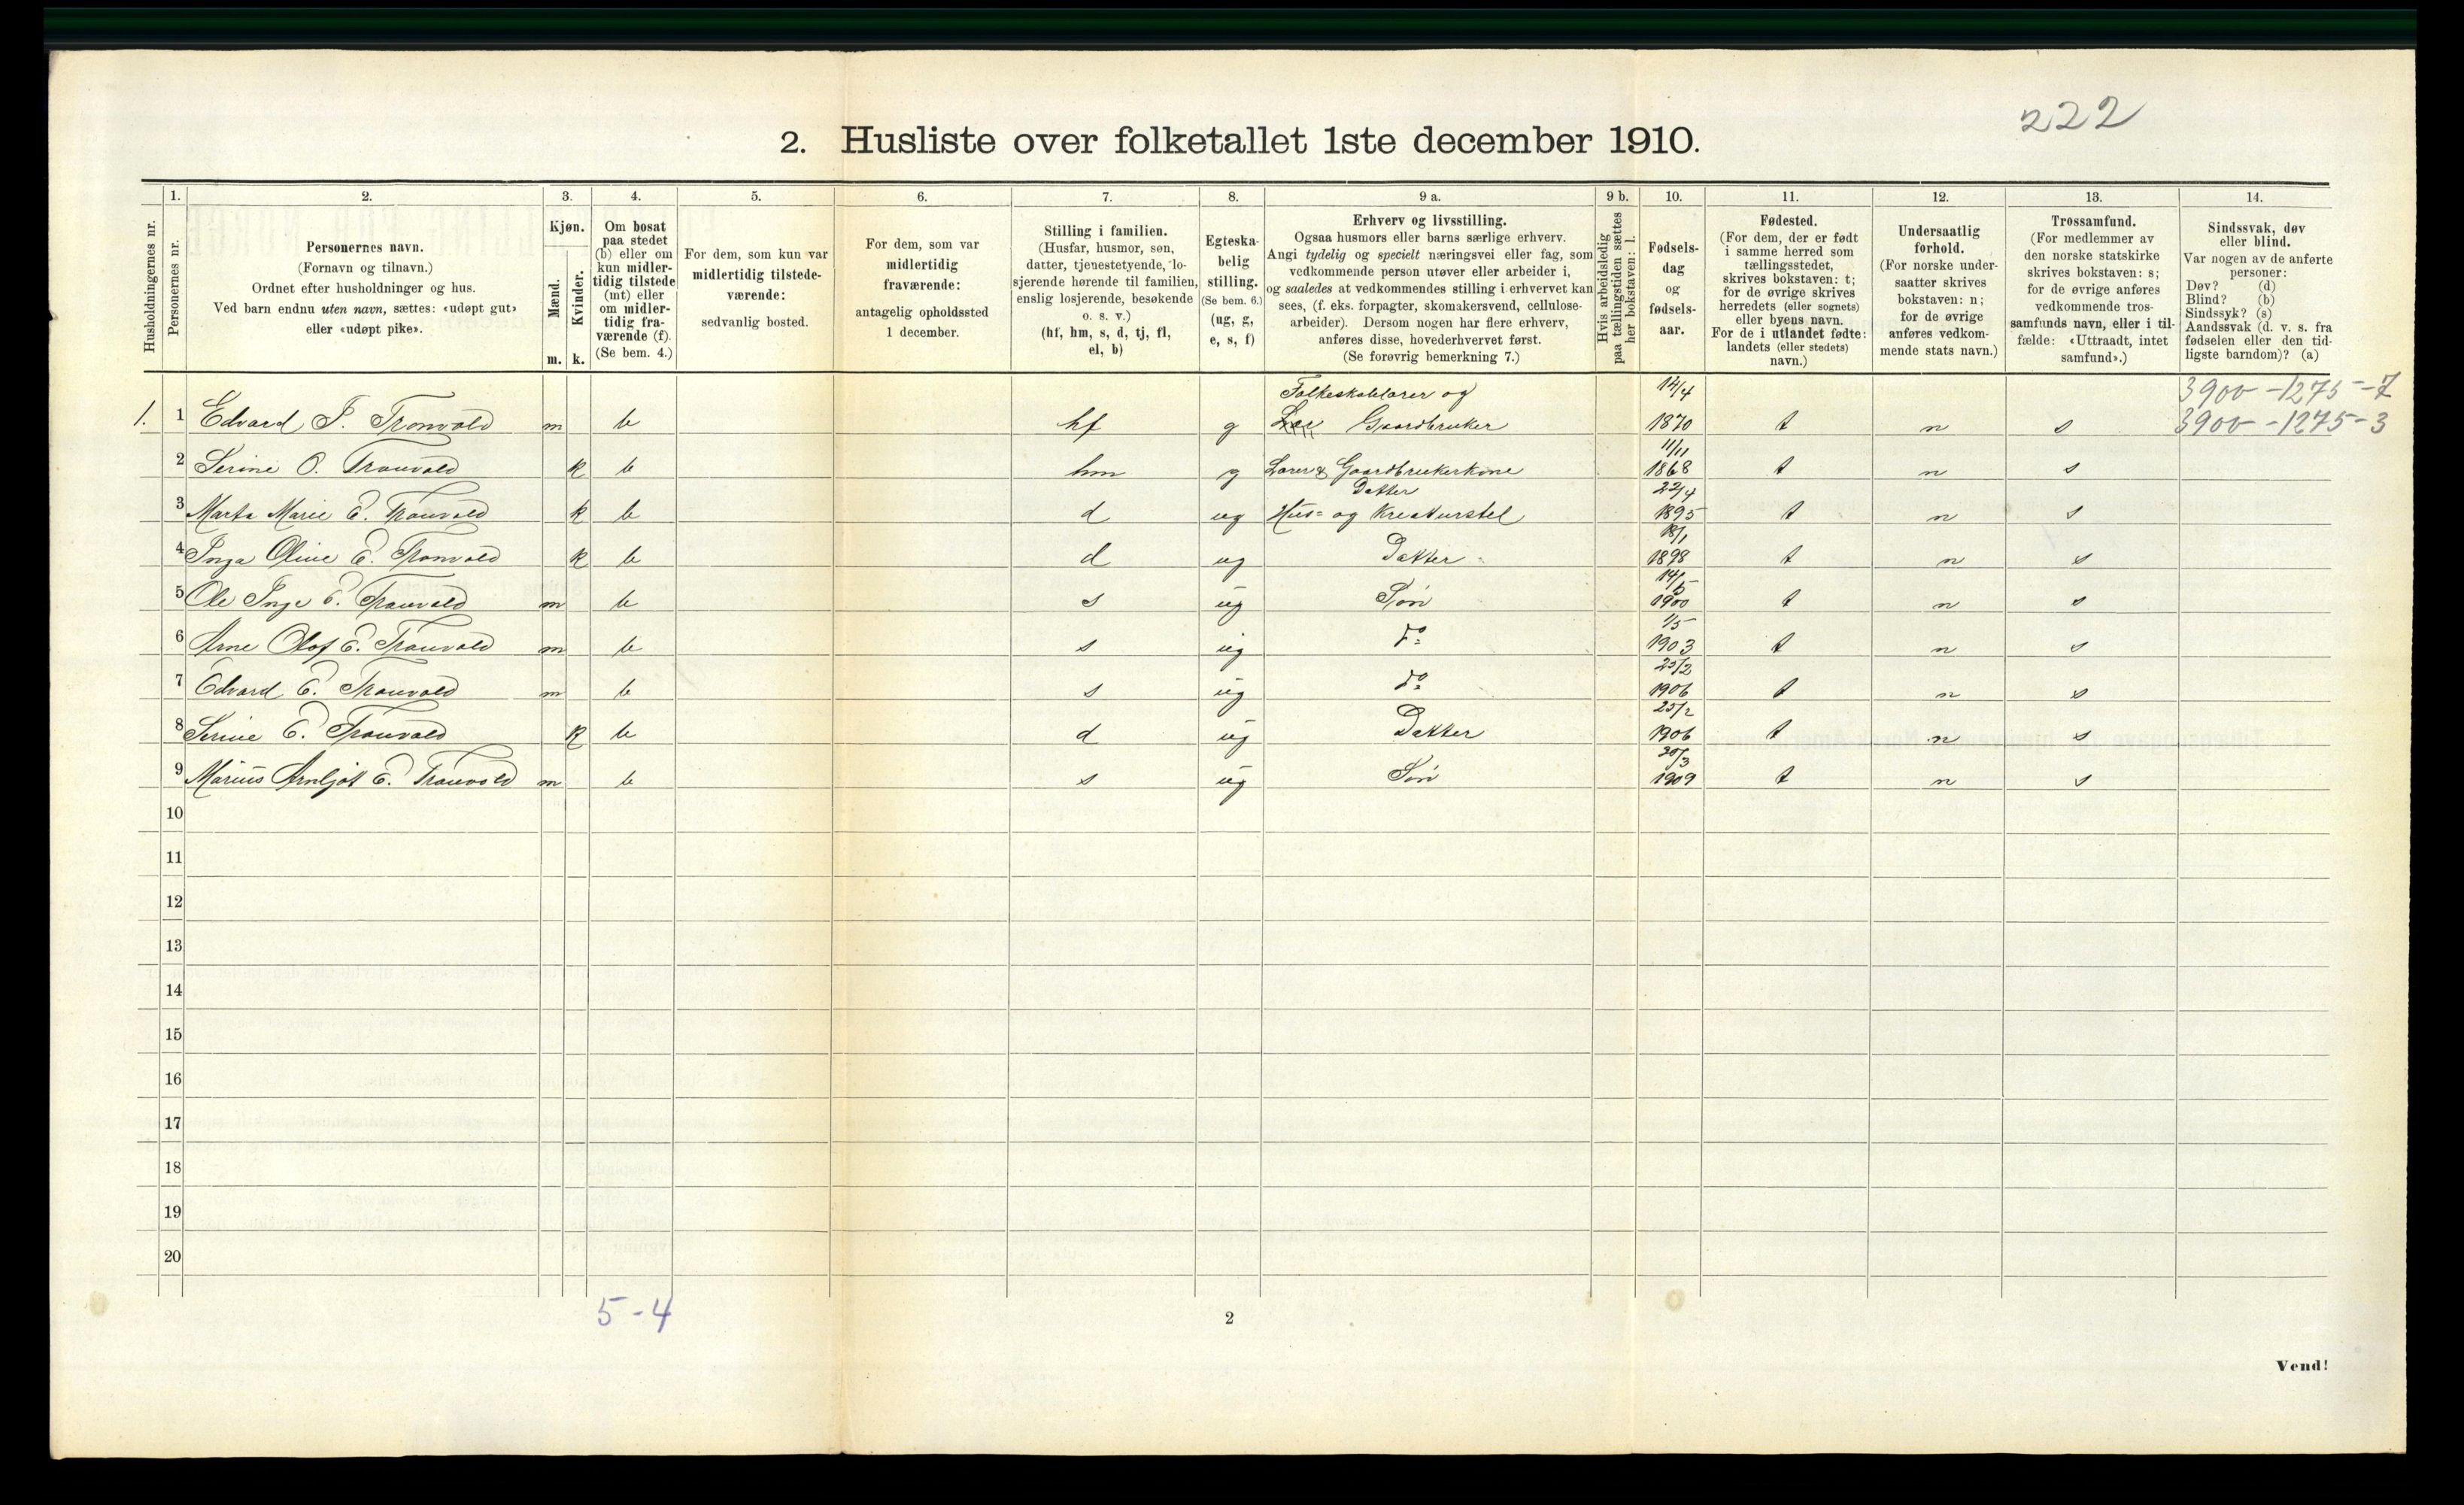 222
2. Husliste over folketallet 1ste december 1910.
Husholdningernes nr.
1.
Personernes nr.
2.
Personernes navn.
(Fornavn og tilnavn.)
Ordnet efter husholdninger og hus.
Ved barn endnu uten navn, sættes: «udøpt gut»
eller «udøpt pike».
3.
Kjøn.
Mænd.
Kvinder.
m. k.
4.
Om bosat
paa stedet
(b) eller om
kun midler-
tidig tilstede
(mt) eller
om midler-
tidig fra-
værende (f).
(Se bem. 4.)
5.
For dem, som kun var
midlertidig tilstede-
værende:
sedvanlig bosted.
6.
For dem, som var
midlertidig
fraværende:
antagelig opholdssted
1 december.
7.
Stilling i familien.
(Husfar, husmor, søn,
datter, tjenestetyende, lo-
sjerende hørende til familien,
enslig losjerende, besøkende
o. s. v.)
(hf, hm, s, d, tj, fl,
el, b)
8.
Egteska-
belig
stilling.
(Se bem. 6.)
(ug, g,
e, s, f)
9 a.
Erhverv og livsstilling.
Ogsaa husmors eller barns særlige erhverv.
Angi tydelig og specielt næringsvei eller fag, som
vedkommende person utøver eller arbeider i,
og saaledes at vedkommendes stilling i erhvervet kan
sees, (f. eks. forpagter, skomakersvend, cellulose-
arbeider). Dersom nogen har flere erhverv,
anføres disse, hovederhvervet først.
(Se forøvrig bemerkning 7.)
9 b.
Hvis arbeidsledig
paa tællingstiden sættes
her bokstaven: l.
10.
Fødsels-
dag
og
fødsels-
aar.
11.
Fødested.
(For dem, der er født
i samme herred som
tællingsstedet,
skrives bokstaven: t;
for de øvrige skrives
herredets (eller sognets)
eller byens navn.
For de i utlandet fødte:
landets (eller stedets)
navn.)
12.
Undersaatlig
forhold.
(For norske under-
saatter skrives
bokstaven: n;
for de øvrige
anføres vedkom-
mende stats navn.)
13.
Trossamfund.
(For medlemmer av
den norske statskirke
skrives bokstaven: s;
for de øvrige anføres
vedkommende tros-
samfunds navn, eller i til-
fælde: «Uttraadt, intet
samfund».)
14.
Sindssvak, døv
eller blind.
Var nogen av de anførte
personer:
Døv? (d)
Blind? (b)
Sindssyk? (s)
Aandssvak (d. v. s. fra
fødselen eller den tid-
ligste barndom)? (a)
Folkeskolelærer og 14/4 3900-1275-7
1. 1 Edvard P. Tronvold m b hf g Gaardbruker 1870 t n s 3900-1275-3
11/11
2 Serine O. Tronvold k b hm g Lærer & Gaardbrukerkone 1868 t n s
Datter 22/4
3 Marta Marie E. Tronvold k b d ug Hus- og Kreaturstel 1895 t n s
18/1
4 Inga Oline E. Tronvold k b d ug Datter 1898 t n s
14/5
5 Ole Inge E. Tronvold m b s ug Søn 1900 t n s
1/5
6 Arne Olof E. Tronvold m b s ug Do 1903 t n s
25/2
7 Edvard E. Tronvold m b s ug Do 1906 t n s
25/2
8 Serine E. Tronvold k b d ug Datter 1906 t n s
/3
9 Marius Arnljot E. Tronvold m b s ug Søn 1909 t n s
10
11
12
13
14
15
16
17
18
19
20
5-4
2
Vend!